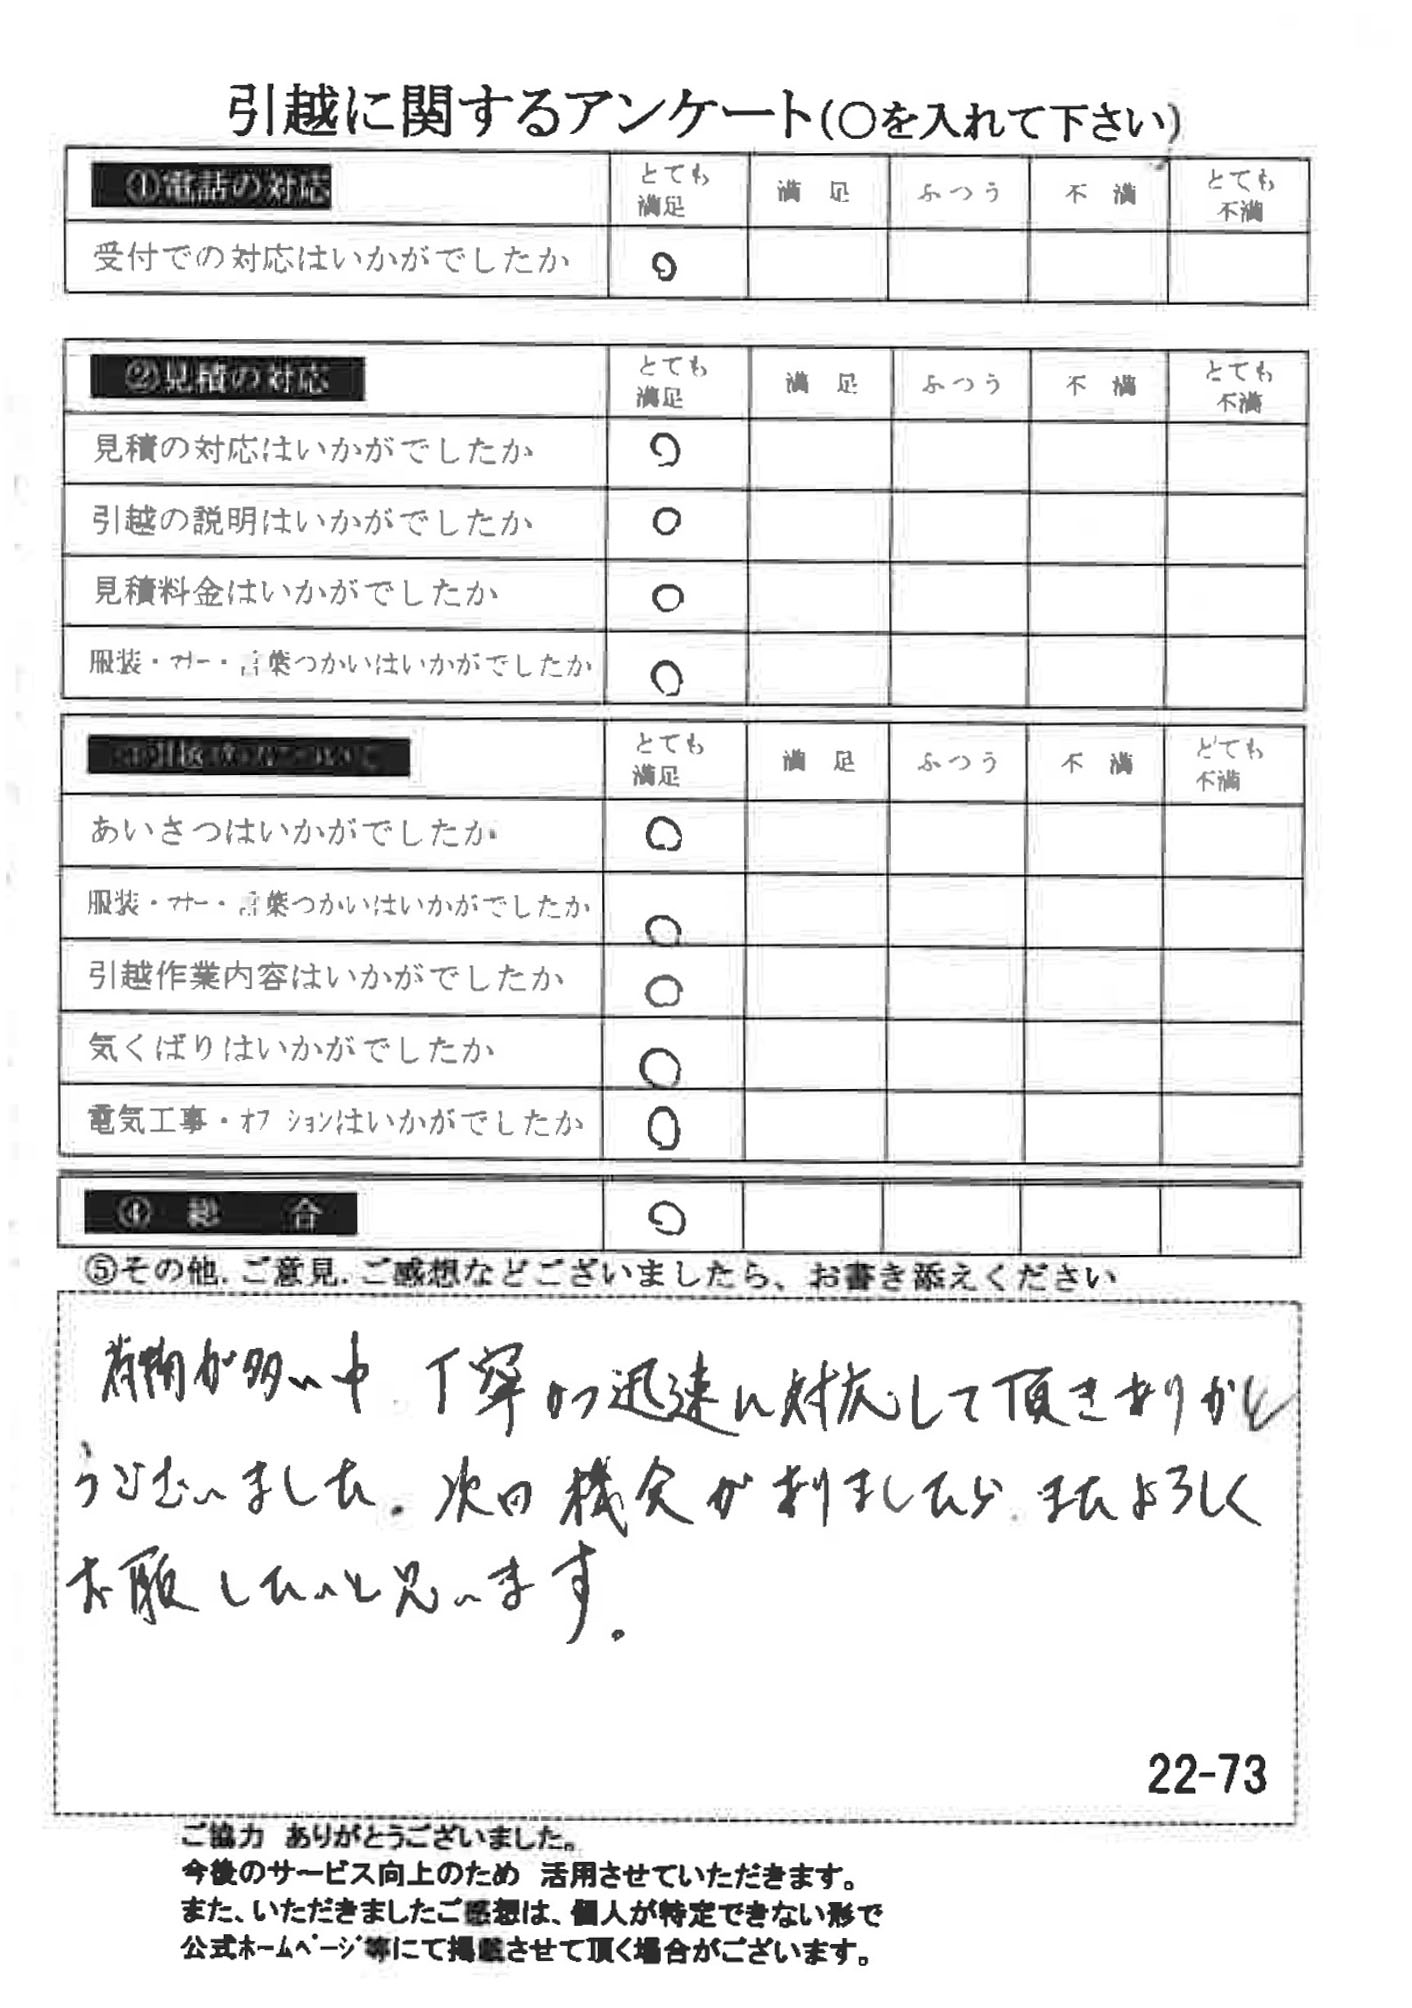 引越に関するアンケート(○を入れて下さい)
①電話の対応 とても満足 満足 ふつう 不満 とても不満
受付での対応はいかがでしたか ○
②見積の対応 とても満足 満足 ふつう 不満 とても不満
見積の対応はいかがでしたか ○
引越の説明はいかがでしたか ○
見積料金はいかがでしたか ○
服装・マナー・言葉つかいはいかがでしたか ○
引越 とても満足 満足 ふつう 不満 とても不満
あいさつはいかがでしたか ○
服装・マナー・言葉つかいはいかがでしたか ○
引越作業内容はいかがでしたか ○
気くばりはいかがでしたか ○
電気工事・オプションはいかがでしたか ○
④総合 ○
⑤その他.ご意見.ご感想などございましたら、お書き添えください
が多い中、丁寧かつ迅速に対応して頂きありがと
うございました。次回機会がありましたら、またよろしく
お願したいと思います。
22-73
ご協力 ありがとうございました。
今後のサービス向上のため 活用させていただきます。
また、いただきましたご感想は、個人が特定できない形で
公式ホームページ等にて掲載させて頂く場合がございます。